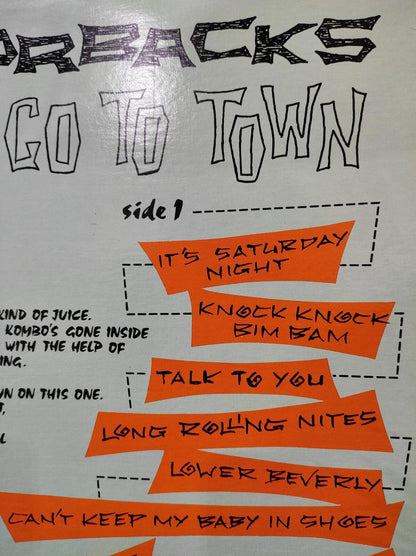 ORBACKS
GO TO TOWN
side 1
IT'S SATURDAY
NIGHT
KNOCK KNOCK
BIM BAM
KIND OF JUICE.
KOMBO'S GONE INSIDE
WITH THE HELP OF
ING.
TALK TO YOU
WN ON THIS ONE.
T,
LONG ROLLING NITES
L
LOWER BEVERLY
CAN'T KEEP MY BABY IN SHOES